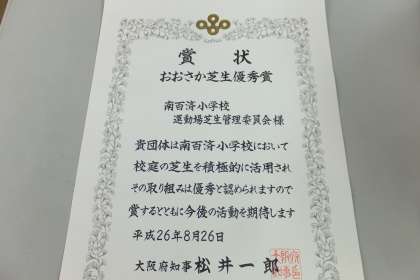 賞状
おおさか芝生優秀賞
南百済小学校
運動場芝生管理委員会様
貴団体は南百済小学校において
校庭の芝生を積極的に活用され
その取り組みは優秀と認められますので
賞するとともに今後の活動を期待します
平成26年8月26日
大阪府知事 松井一郎